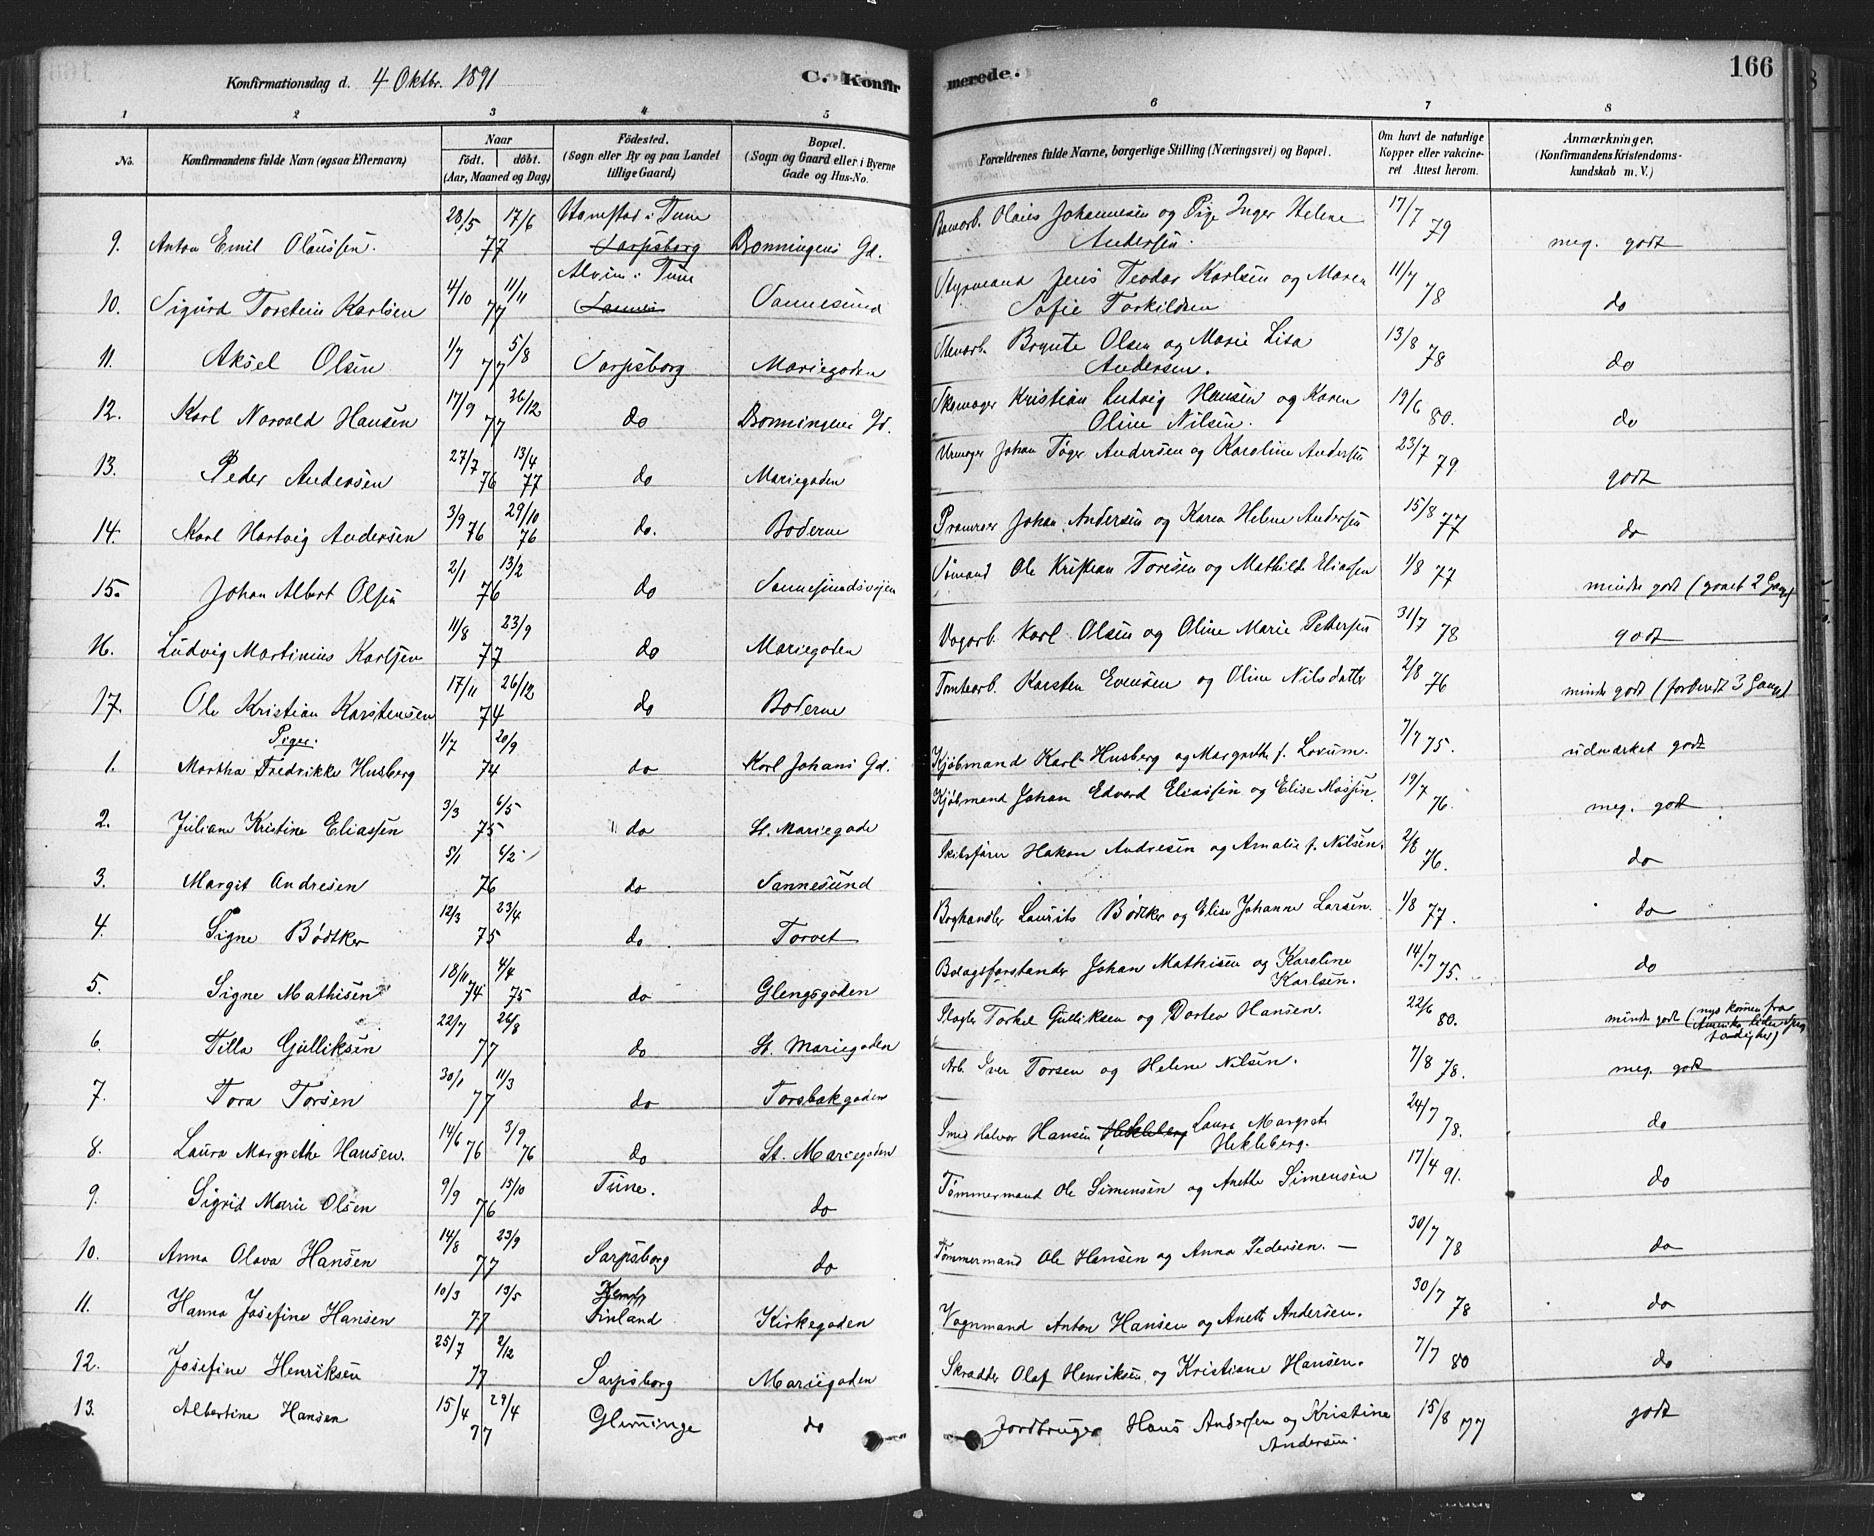 Konfirmationsdag d. 4 Oktbr. 1891 C. Konfirmerede. 166
1 2 3 4 5 6 7 8
No. Konfirmandens fulde Navn (ogsaa Efternavn) Naar født. døbt. (Aar, Maaned og Dag) Fødested. (Sogn eller By og paa Landet tillige Gaard) Bopæl. (Sogn og Gaard eller i Byerne Gade og Hus-No. Forældrenes fulde Navne, borgerlige Stilling (Næringsvei) og Bopæl. Om havt de naturlige Kopper eller vakcineret Attest herom. Anmærkninger. (Konfirmandens Kristendomskundskab m. V.)
9. Anton Emil Olaussen. 28/5 17/6 77 i Tune Sarpsborg Gd. Olaus Johannesen og Pige Inger Helene Andersen. 17/7 79 meg. godt
10. Sigurd Torstein Karlsen 4/10 11/11 77 Alvim i Tune Sannesund Styrmand Jens Teodor Karlsen og Maren Sofie Torkildsen 11/7 78 do
11. Aksel Olsen 1/7 5/8 77 Sarpsborg Mariegaden Brynte Olsen og Marie Lisa Andersen. 13/8 78 do
12. Karl Narvald Hansen 17/9 26/12 77 do Gd. Skomager Kristian Ludvig Hansen og Karen Oline Nilsen. 19/6 80. do
13. Peder Andersen 27/7 76 13/4 77 do Mariegaden Urmager Johan Andersen og Karoline Andersen 23/7 79 godt
14. Karl Hartvig Andersen 3/9 76 29/10 76 do. Boderne Johan Andersen og Karen Helene Andersen 15/8 77 do
15. Johan Albert Olsen 2/1 13/2 76 do Sannesundsvejen Sømand Ole Kristian Toresen og Mathilde Eliassen 1/8 77 mindre godt (gaaet 2 Gange)
16. Ludvig Martinius Karlsen 11/8 23/9 77 do Mariegaden Karl Olsen og Oline Marie Pettersen 31/7 78 godt
17. Ole Kristian Karstensen 17/11 26/12 74 do Boderne Tomtearb. Karsten Evensen og Oline Nilsdatter 2/8 76 mindre godt (forberedt 3 Gange)
Piger.
1. Martha Fredrikke Husberg 1/7 20/9 74 do Karl Johans Gd. Kjøbmand Karl Husberg og Margrethe f. Lorum. 7/7 75. udmærket godt
2. Juliane Kristine Eliassen 3/3 6/5 75 do St. Mariegade Kjøbmand Johan Edvard Eliassen og Elise Mossin. 19/7 76. meg. godt
3. Margit Andresen 5/1 6/2 76 do Sannesund Skibsfører Hakon Andresen og Amalie f. Nilsen. 2/8 76. do
4. Signe Bødtker 12/3 23/4 75 do Torvet Boghandler Laurits Bødtker og Elise Johanne Larsen. 1/8 77. do
5. Signe Mathisen 18/11 74 4/4 75 do Glengsgaden Bolagsforstander Johan Mathisen og Karoline Karlsen. 14/7 75. do
6. Tilla Gulliksen 22/7 26/8 77 do St. Mariegaden Slagter Torkel Gulliksen og Dortea Hansen. 22/6 80. mindre godt (nys kommen fra Amerika, liden
7. Tora Torsen 30/1 11/3 77 do Torsbækgaden Arb. Iver Torsen og Helene Nilsen. 7/8 78. meg. godt
8. Laura Margrethe Hansen. 14/6 76 3/9 76 do St. Mariegaden Smed Halvor Hansen Hekleberg Laura Margrete Hekleberg. 24/7 78. do
9. Sigrid Marie Olsen 9/9 15/10 76 Tune. do Tømmermand Ole Simensen og Anette Simensen 17/4 91. do
10. Anna Olava Hansen 14/8 23/9 77 Sarpsborg do Tømmermand Ole Hansen og Anna Pedersen. — 30/7 78 do
11. Hanna Josefine Hansen 10/3 13/5 77 Finland Kirkegaden Vognmand Anton Hansen og Anette Andersen. 30/7 78 do
12. Josefine Henriksen 25/7 2/12 77 Sarpsborg Mariegaden Skrædder Olaf Henriksen og Kristiane Hansen. 7/7 80 do
13. Albertine Hansen 15/4 29/4 77 Glemminge do Jordbruger Hans Andersen og Kristine Andersen. 15/8 77 godt